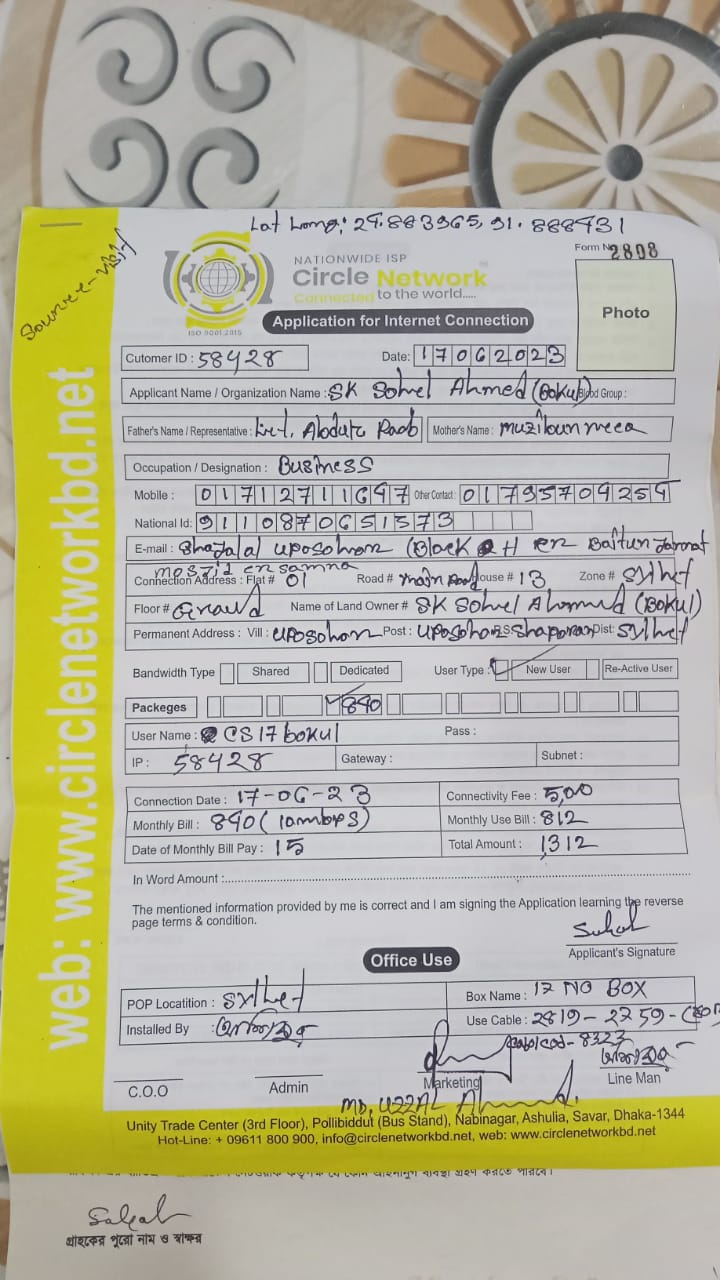 Lat Long; 24.883965, 91.888431
NATIONWIDE ISP
Form No 2808
Circle Network
Connected to the world.....
ISO 9001:2015
Photo
Application for Internet Connection
Cutomer ID : 58428 Date: 17062023
Applicant Name / Organization Name : SK Sohel Ahmed (Bokul) Blood Group :
Father's Name / Representative : Mother's Name :
Occupation / Designation : Business
Mobile : 01712711647 Other Contact : 01795709254
National Id: 9110870651573
E-mail : Shajalal uposohon (Block H
Connection Address : Flat # 01 Road # main Road House # 13 Zone # Sylhet
Floor # Name of Land Owner # SK Sohel Ahmed (Bokul)
Permanent Address : Vill : uposohon Post : uposohon P.S: Shaporan Dist: Sylhet
Bandwidth Type Shared Dedicated User Type : New User Re-Active User
Packeges 840
User Name : CS17bokul Pass :
IP : 58428 Gateway : Subnet :
Connection Date : 17-06-23 Connectivity Fee : 500
Monthly Bill : 840 (10mbps) Monthly Use Bill : 812
Date of Monthly Bill Pay : 15 Total Amount : 1312
In Word Amount :
The mentioned information provided by me is correct and I am signing the Application learning the reverse
page terms & condition.
Applicant's Signature
Office Use
POP Locatition : Sylhet Box Name : 17 NO BOX
Installed By : Use Cable : 2819-2759-
C.O.O Admin Marketing Line Man
MD. UZZAL Ahmed.
Unity Trade Center (3rd Floor), Pollibiddut (Bus Stand), Nabinagar, Ashulia, Savar, Dhaka-1344
Hot-Line: + 09611 800 900, info@circlenetworkbd.net, web: www.circlenetworkbd.net
web: www.circlenetworkbd.net
গ্রাহকের পুরো নাম ও স্বাক্ষর